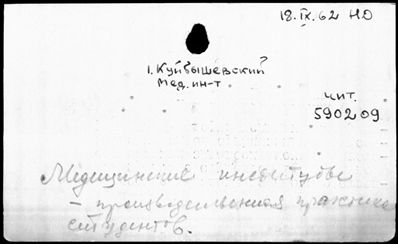 18.IX.62 НД
1. Куйбышевский
мед. ин-т
чит.
590209
Медицинские институты
– производственная практика
студентов.